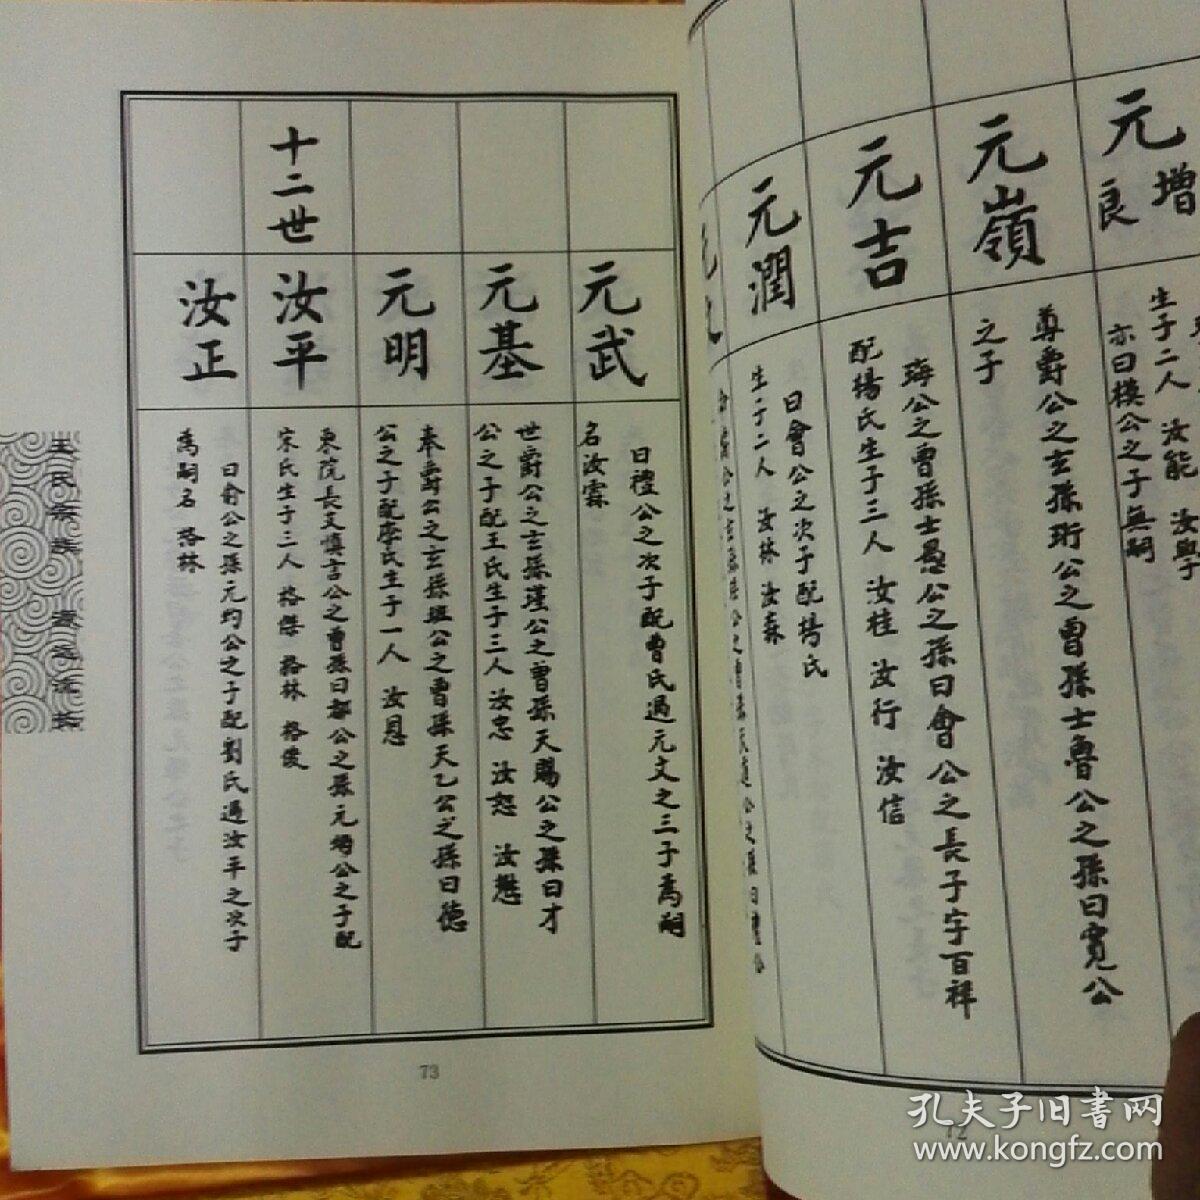 元
增
良
生子二人 汝能 汝與子
亦曰模公之子無嗣
元嶺
尊爵公之玄孫珩公之曾孫士魯公之孫曰寬公
之子
元吉
海公之曾孫士愚公之孫曰會公之長子字百祥
配楊氏生子三人 汝桂 汝行 汝信
元潤
曰會公之次子配楊氏
生子二人 汝林 汝森
元武
曰禮公之次子配曹氏過元文之三子為嗣
名汝霖
元基
世爵公之玄孫瑾公之曾孫天賜公之孫曰才
公之子配王氏生子三人 汝忠 汝恕 汝懋
元明
奉爵公之玄孫班公之曾孫天乙公之孫曰德
公之子配李氏生子一人 汝恩
十二世
汝平
東院長支慎言公之曾孫曰都公之孫元公之子配
宋氏生子三人 格傑 格林 格俊
汝正
曰俞公之孫元灼公之子配劉氏過汝平之次子
為嗣名 格林
王氏
源遠流
73
72
孔夫子旧书网
www.kongfz.com